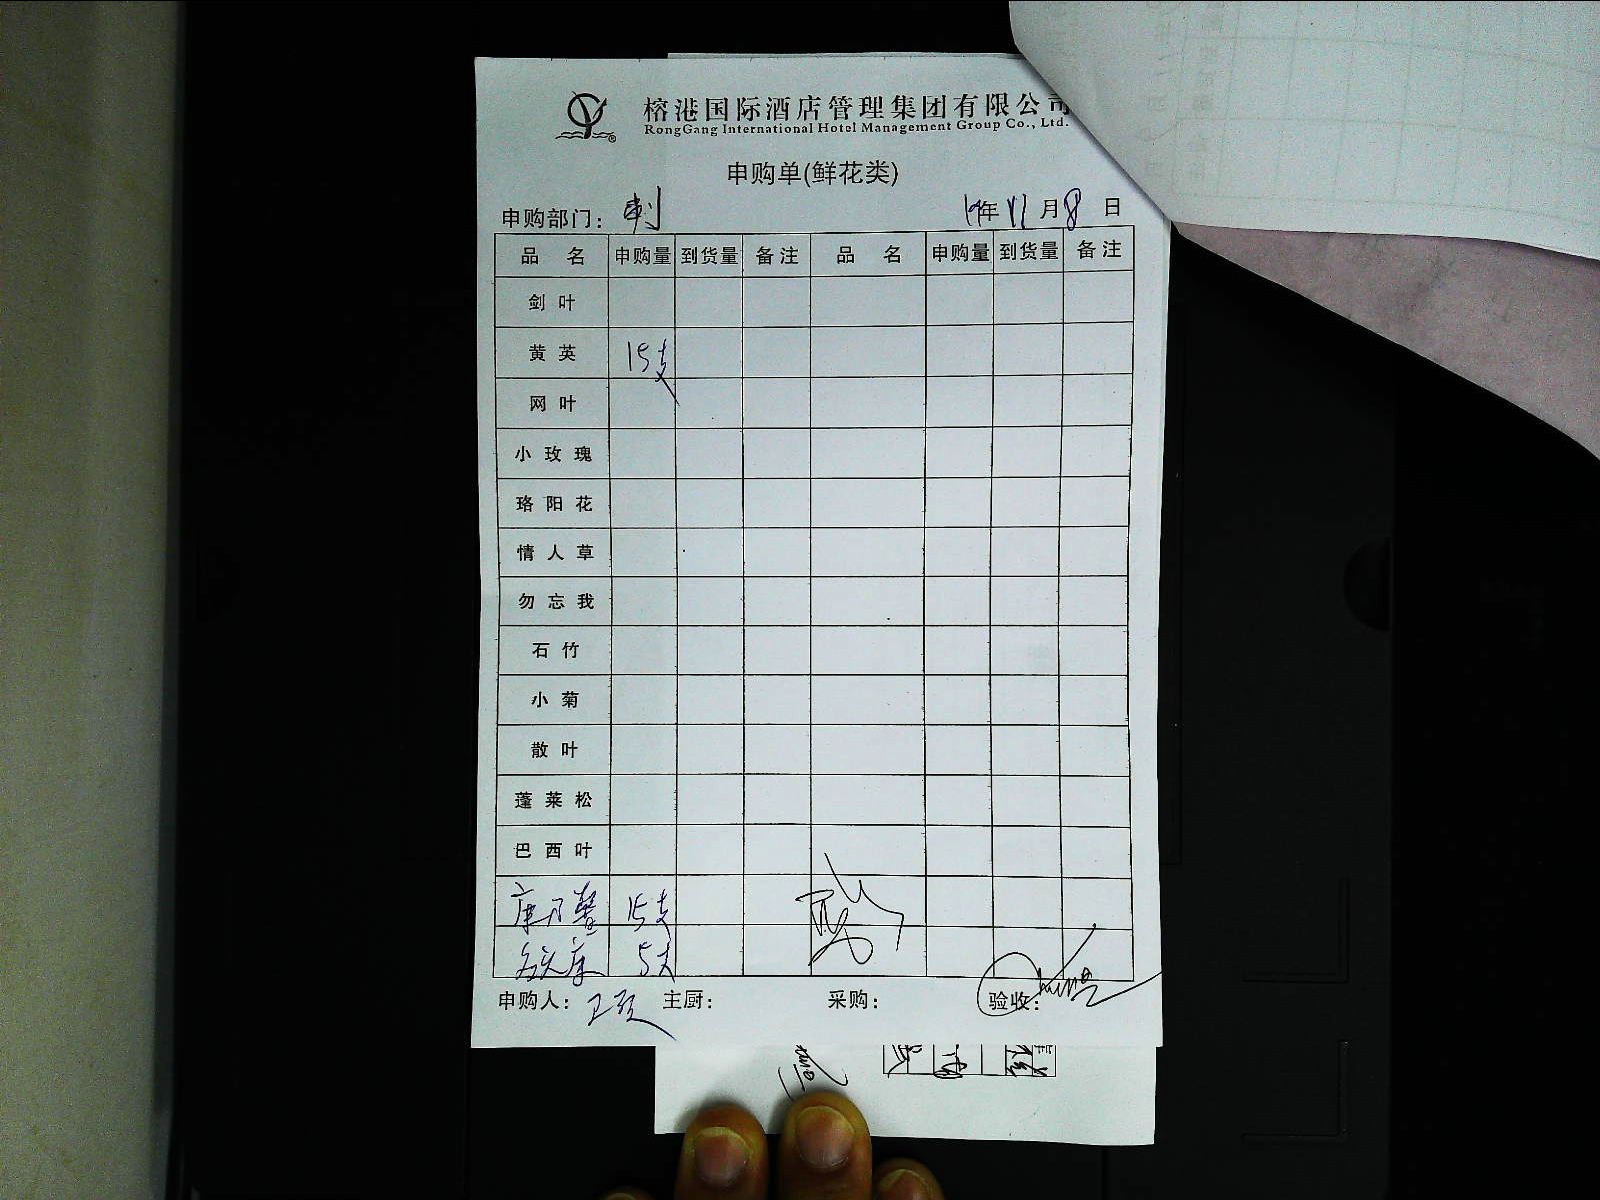 榕港国际酒店管理集团有限公司
RongGang International Hotel Management Group Co., Ltd.
申购单(鲜花类)
申购部门: 刺 19年 11月 8日
品名 申购量 到货量 备注 品名 申购量 到货量 备注
剑叶
黄英 15支
网叶
小玫瑰
珞阳花
情人草
勿忘我
石竹
小菊
散叶
蓬莱松
巴西叶
康乃馨 15支
5支
申购人: 主厨: 采购: 验收: